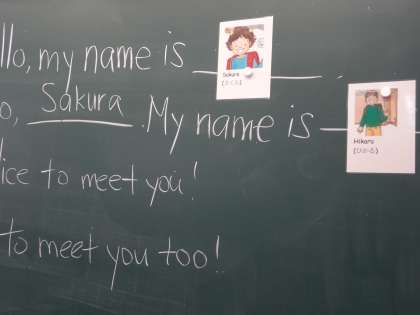 llo, my name is
Sakura
(さくら)
o, Sakura. My name is
Hikaru
(ひかる)
ice to meet you!
to meet you too!